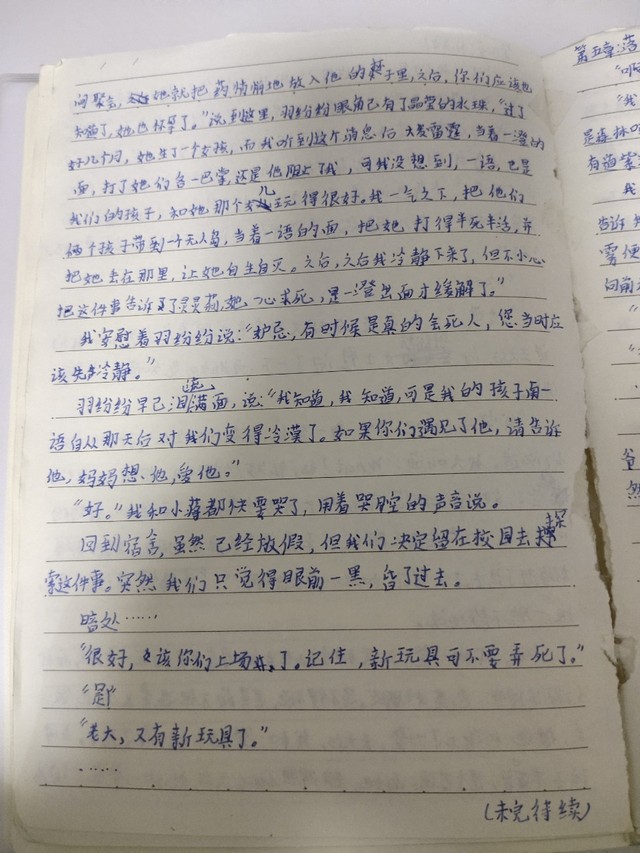 闺聚会，她就把药悄悄地放入他的杯子里，之后，你们应该也
知道了，她也怀孕了。”说到这里，羽纷纷眼角已有了晶莹的水珠，“过了
好几个月，她生了个女孩，而我听到这个消息后大发雷霆，当着一澄的
面，打了她们各一巴掌，还是他阻止了我，可我没想到，一语，也是
我们的孩子，和她那个女儿玩得很好。我一气之下，把他们
俩个孩子带到一个无人岛，当着一语的面，把她打得半死半活，并
把她丢在那里，让她自生自灭。之后，之后我冷静下来了，但不小心
把这件事告诉了灵灵莉，她一心求死，是一澄出面才缓解了。”
我安慰着羽纷纷说：“妒忌，有时候是真的会死人，您当时应
该先冷静。”
羽纷纷早已泪流满面，说：“我知道，我知道，可是我的孩子南一
语自从那天后对我们变得冷漠了。如果你们遇见了他，请告诉
他，妈妈想他，爱他。”
“好。”我和小蒋都快要哭了，用着哭腔的声音说。
回到宿舍，虽然已经放假，但我们决定留在校园去探
索这件事。突然我们只觉得眼前一黑，昏了过去。
暗处……
“很好，该你们上场了。记住，新玩具可不要弄死了。”
“是”
“老大，又有新玩具了。”
……
（未完待续）
第五章：落
“啊
“我
是森林
有迷雾
我
告诉
雾便
向前
“
“
爸
然